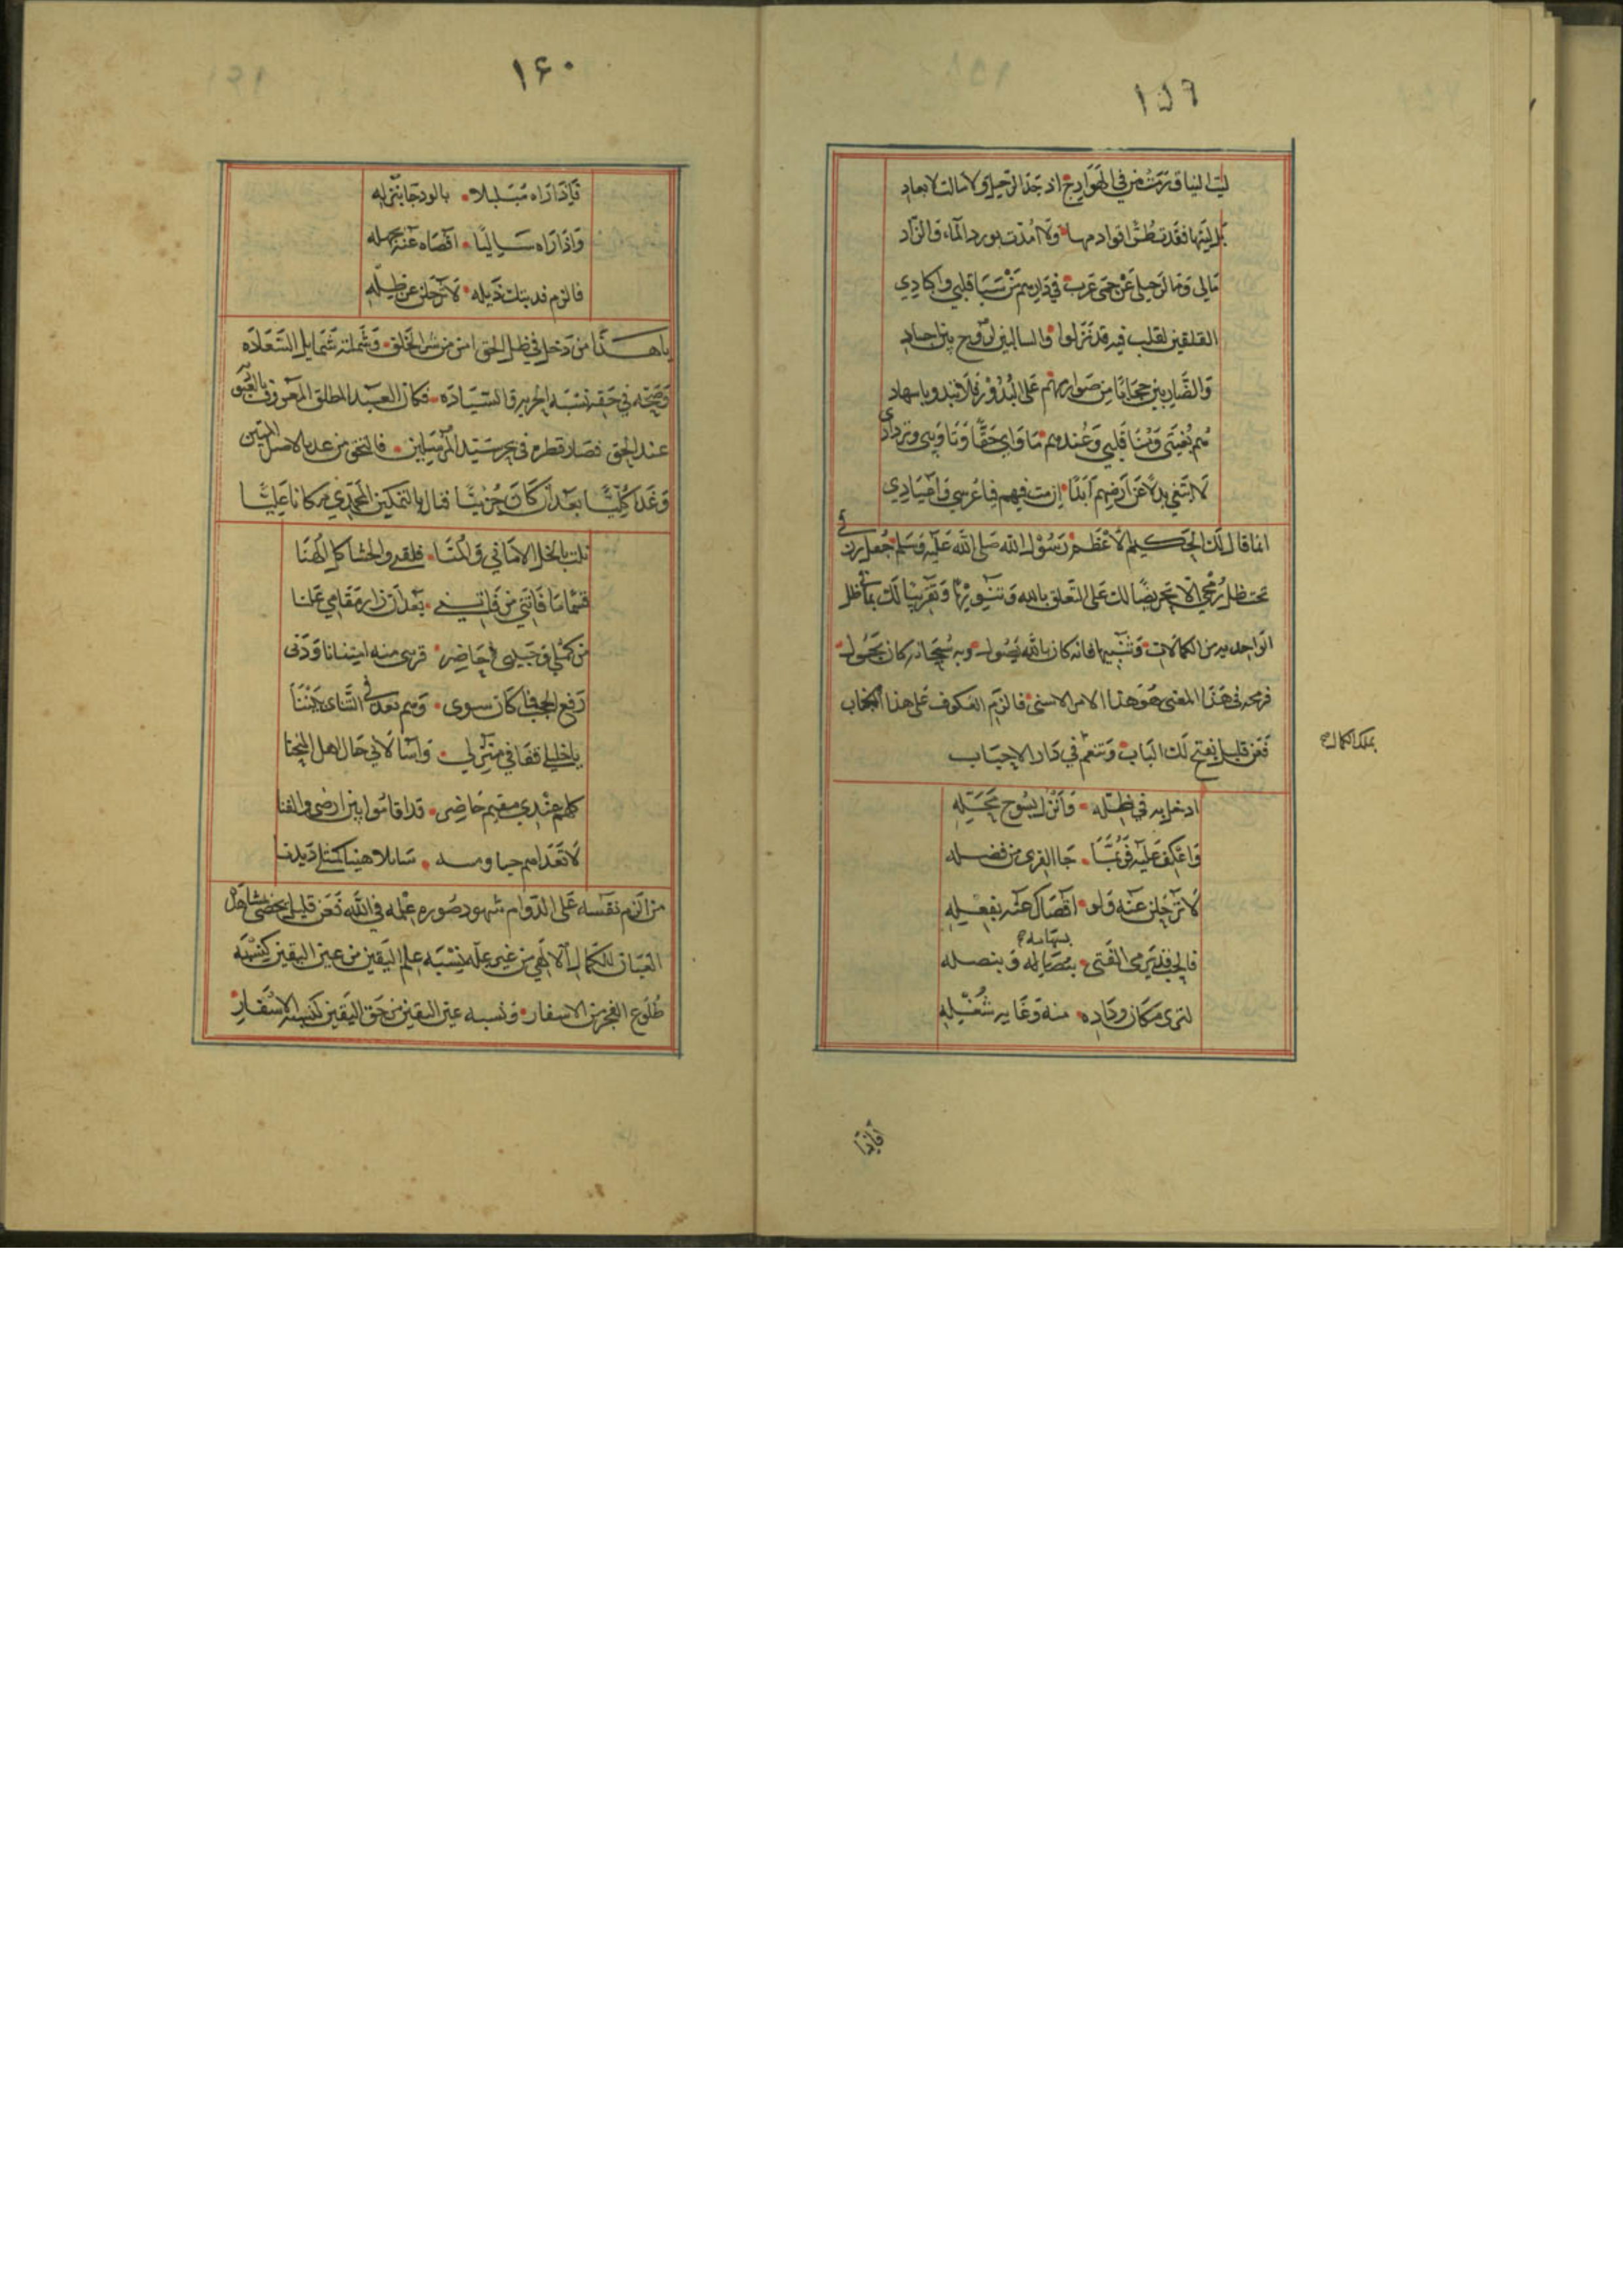 ١٥٩
ليت النياق ترمت من في الهوادج اذ جد الرحيل ولا سالت لابعاد
بل ليتها فقدت ولا امدت بورد الماء والزاد
مالى وما لرحيلى عن حمى عرب في دارهم من سبا قلبي واكبادي
القلقين لقلب فيه قد نزلوا والسالبين لروح بين اجساد
والضاربين حجابا من صوارمهم على البدور فلا تبدو باسهاد
هم بغيتى ومنا قلبي وعندهم ماواي حقا وتاويبى وتردادي
لا ابتغي بدلا عن ارضهم ابدا ان مت فيهم فاعرسي واعيادي
انما قال لك الحكيم الاعظم رسول الله صلى الله عليه وسلم جعل رزقي
تحت ظل رمحي الا تحريضا لك على التعلق بالله وتقريبا لك
الواحد به من الكمالات وتنبيها فانه كان بالله يصول وبه سبحانه كان يجول
فرمحه في هذا المعنى هو هذا الامر الاسنى فالزم العكوف على هذا الجناب
فعن قليل يفتح لك الباب وتنعم في دار الاحباب
بملك الكمال
ادخل به في ظله وانزل بسوح محله
واعكف عليه فربما جا القرى من فضله
لا ترحلن عنه ولو اقصاك عنه بفعله
بسهامه
فالحب قد يرمى الفتى وبنصله
لترى مكان وداده منه وغاية شغله
فاذا
١٦٠
فاذا راه متبلبلا بالود جا بنزله
واذا راه ساليا اقصاه عنه بجهله
فالزم فديتك ذيله لا ترحلن عن ظله
يا هذا من دخل في ظل الحق امن من شر الخلق وشملته شمايل السعادة
وصحت في حقه نسبة الحرية والسيادة فكان العبد المطلق المعروف
عند الحق فصار قطرة في بحر سيد المرسلين فالتحق من عد بالاصل المتين
وغدا كليا بعد ان كان جزئيا فنال بالتمكين المحمدي مكانا عليا
نلت بالخل الاماني والمنا فلقلبى والحشا كل الهنا
قسما ما فاتني من بعد ان زار مقامي علنا
من كمثلي وحبيبى حاضر قربى منه امتنانا ودنى
رفع الحجب فما كان سوى وهم بعد في التناى بيننا
يا خليلي قفا في منزلي واسالاني حال اهل المنحنا
كلهم عندي مقيم حاضر قد اقاموا بين ارضى والفنا
لا تعداهم حيا ومسه سائلا هنيا كمثلى ديدنا
من الزم نفسه على الدوام شهود صورة علمه في الله فعن قليل يحضى بمشاهدة
العيان للكمال الالهي من غير علة نسبة علم اليقين من عين اليقين كنسبة
طلوع الفجر من الاسفار ونسبة عين اليقين من حق اليقين كنسبة الاسفار